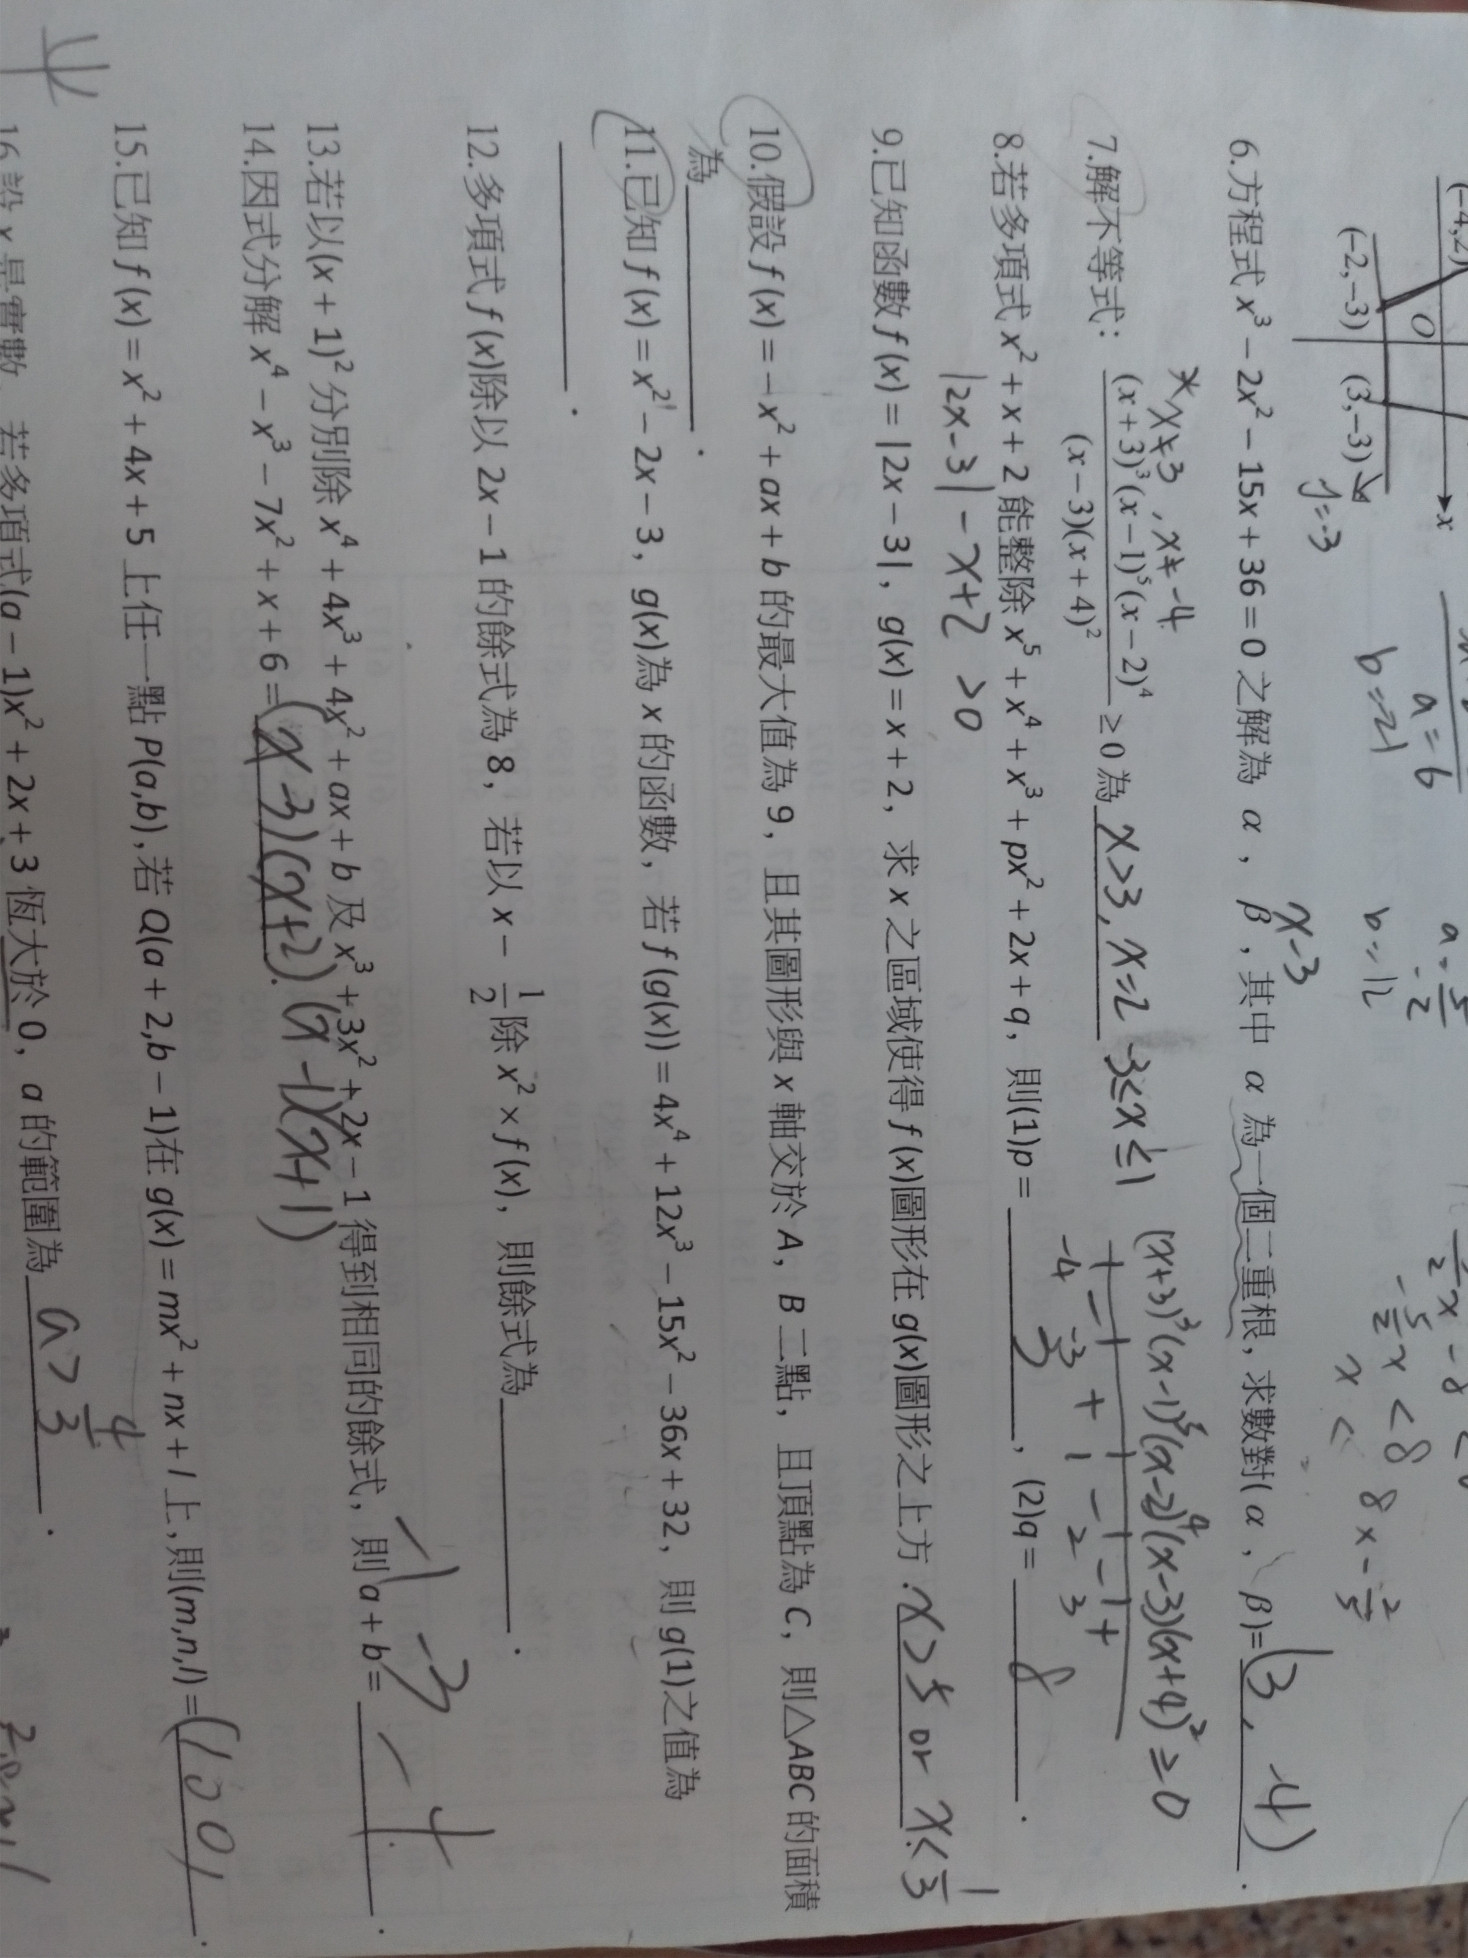 (-4,2)
O
x
(-2,-3)
(3,-3)
y=-3
a=6
b=21
b=12
x-3
6.方程式 x³ − 2x² − 15x + 36 = 0 之解為 α，β，其中 α 為一個二重根，求數對(α，β)= (3, -4) .
x≠3, x≠-4
7.解不等式： (x+3)³(x−1)⁵(x−2)⁴ / (x−3)(x+4)² ≥ 0 為 x>3, x=2 -3≤x≤1
(x+3)³(x-1)⁵(x-2)⁴(x-3)(x+4)² ≥ 0
-4 -3 1 2 3
8.若多項式 x² + x + 2 能整除 x⁵ + x⁴ + x³ + px² + 2x + q，則(1)p = 3 ，(2)q = 8 .
|2x-3| - x+2 >0
9.已知函數 f (x) = |2x − 3|，g(x) = x + 2，求 x 之區域使得 f (x)圖形在 g(x)圖形之上方 : x>5 or x<1/3 .
10.假設 f (x) = − x² + ax + b 的最大值為 9，且其圖形與 x 軸交於 A，B 二點，且頂點為 C，則△ABC 的面積
為 .
11.已知 f (x) = x² − 2x − 3，g(x)為 x 的函數，若 f (g(x)) = 4x⁴ + 12x³ − 15x² − 36x + 32，則 g(1)之值為
.
12.多項式 f (x)除以 2x − 1 的餘式為 8，若以 x − 1/2 除 x² × f (x)，則餘式為 .
13.若以(x + 1)² 分別除 x⁴ + 4x³ + 4x² + ax + b 及 x³ + 3x² + 2x − 1 得到相同的餘式，則 a + b = -4 .
-1 -3
14.因式分解 x⁴ − x³ − 7x² + x + 6 = (x-3)(x+2) . (x-1)(x+1)
15.已知 f (x) = x² + 4x + 5 上任一點 P(a,b)，若 Q(a + 2,b − 1)在 g(x) = mx² + nx + l 上，則(m,n,l) = (1,0,0) .
16.設 x 是實數，若多項式(a − 1)x² + 2x + 3 恆大於 0，a 的範圍為 a > 4/3 .